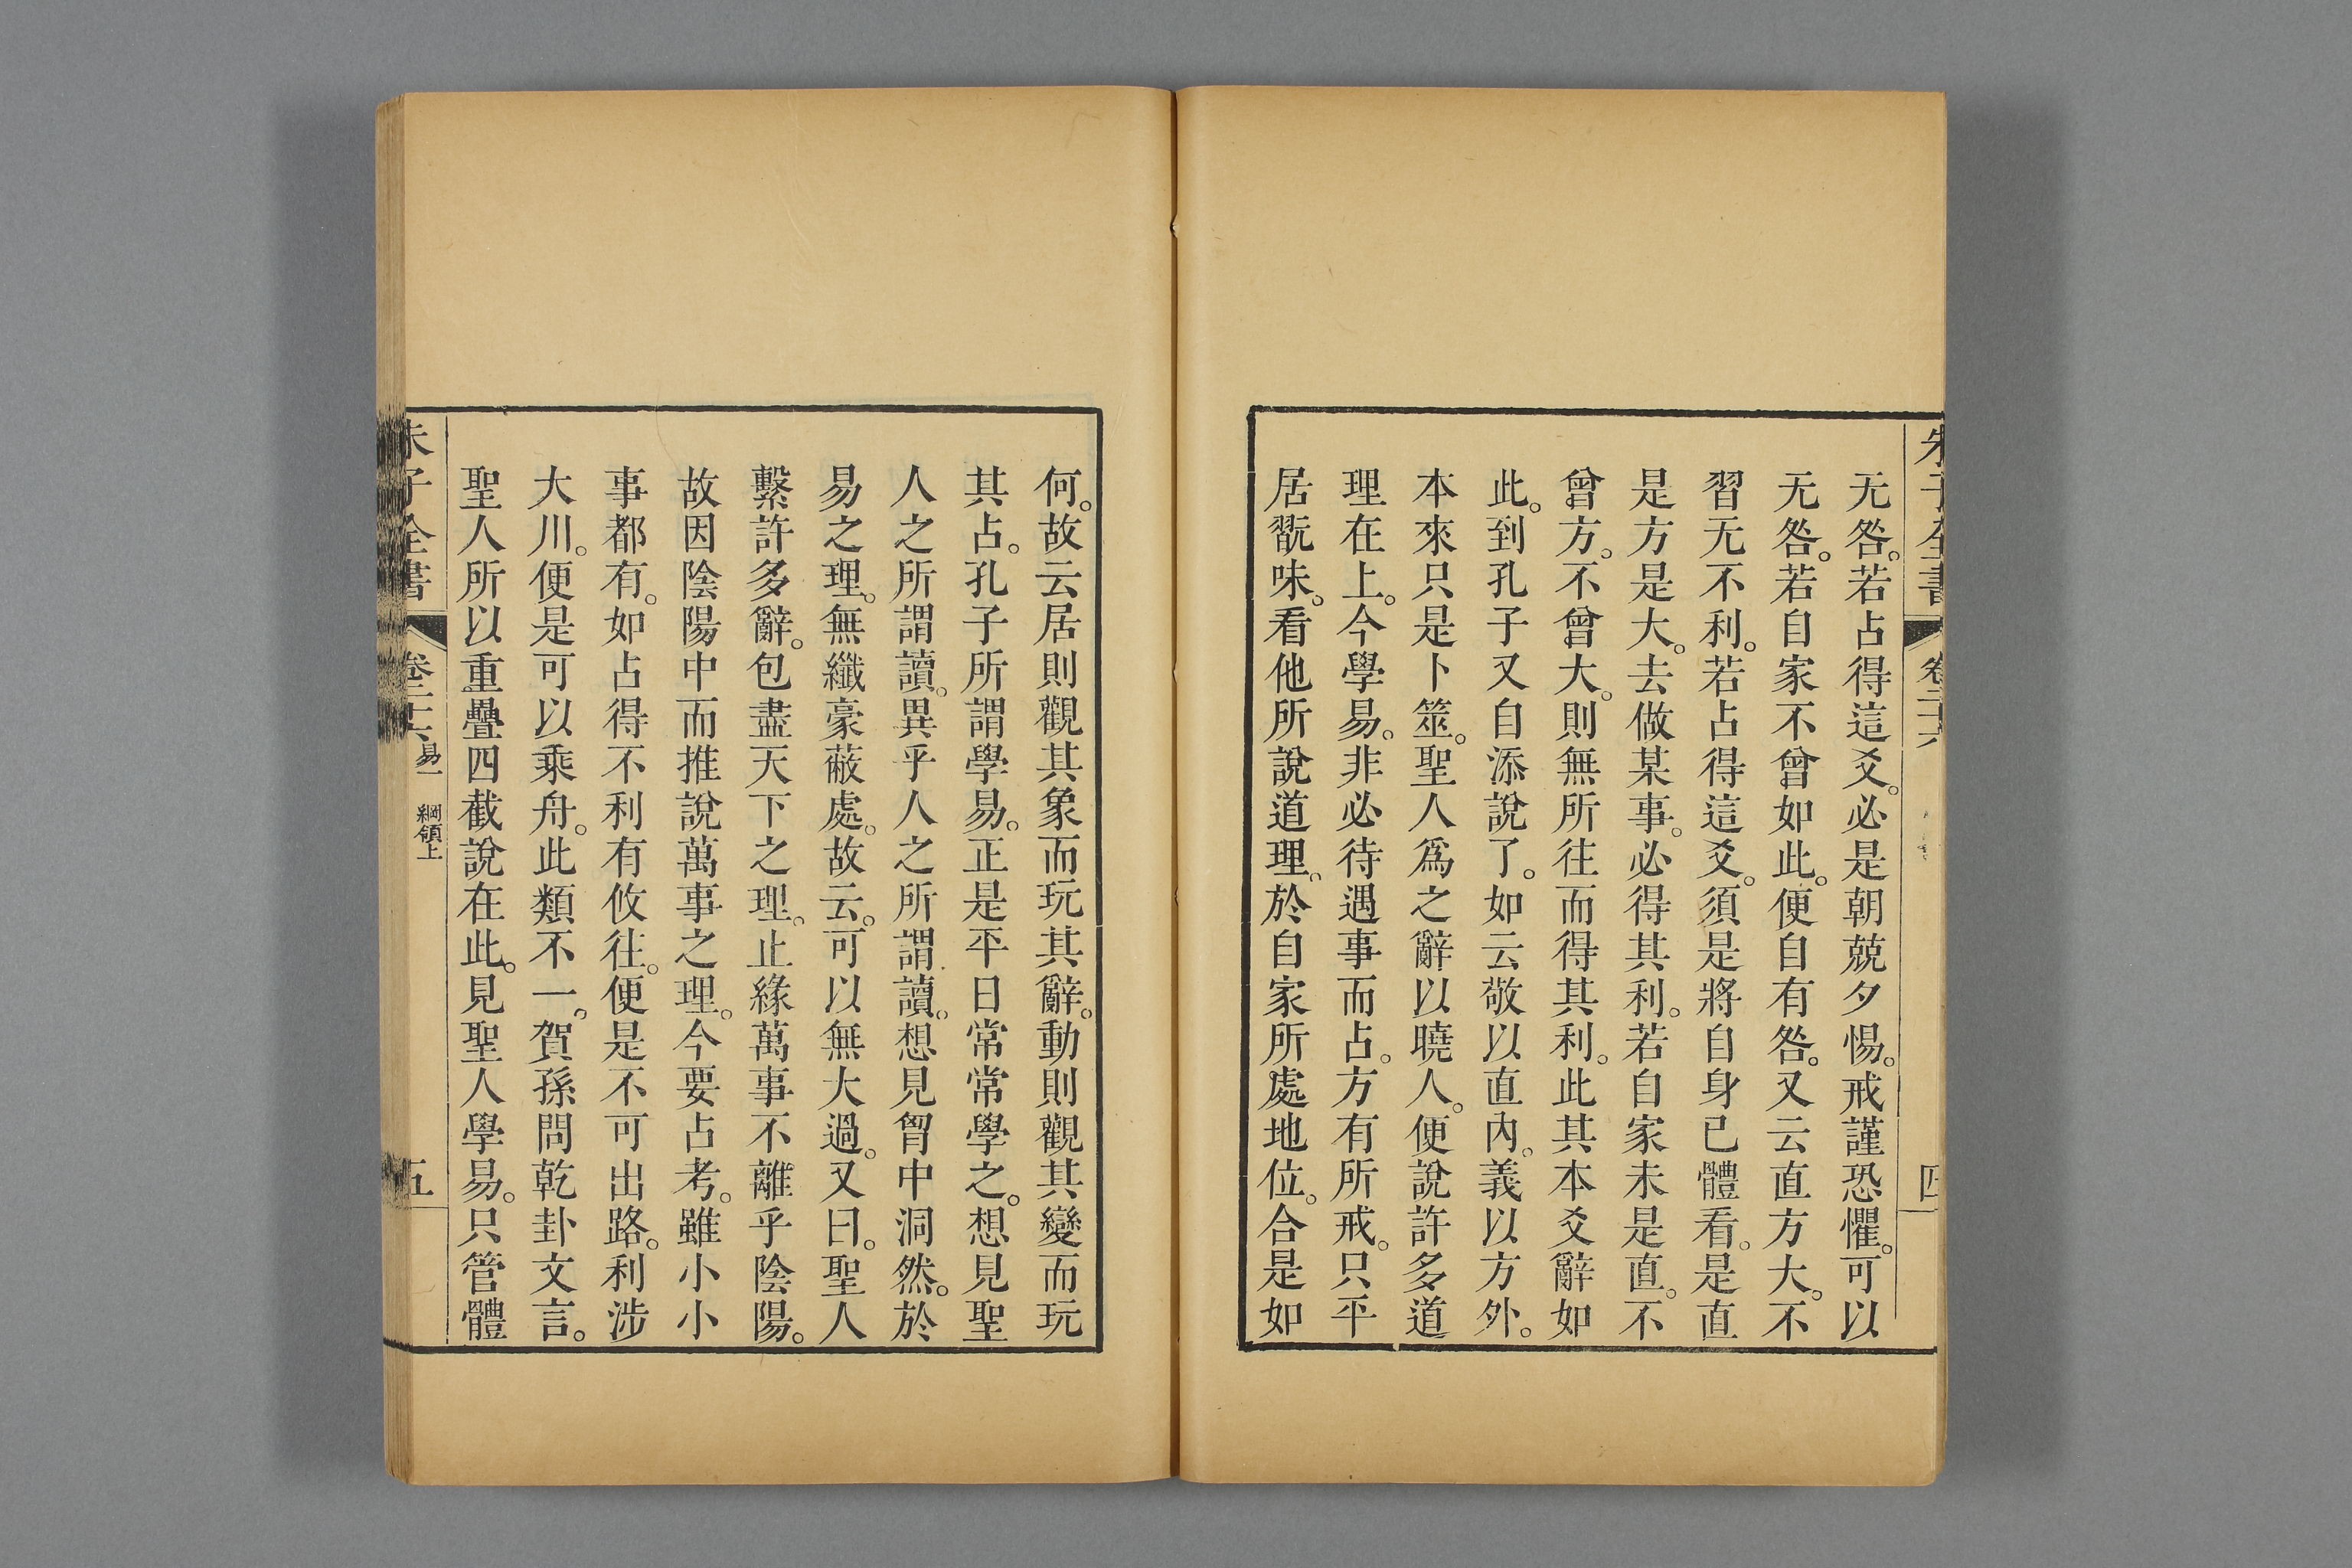 朱子全書 卷二十六 四
无咎。若占得這爻。必是朝兢夕惕。戒謹恐懼。可以
无咎。若自家不曾如此。便自有咎。又云直方大。不
習无不利。若占得這爻。須是將自身已體看。是直
是方是大。去做某事。必得其利。若自家未是直。不
曾方。不曾大。則無所往而得其利。此其本爻辭如
此。到孔子又自添說了。如云敬以直內。義以方外。
本來只是卜筮。聖人爲之辭以曉人。便說許多道
理在上。今學易。非必待遇事而占。方有所戒。只平
居翫味。看他所說道理。於自家所處地位。合是如
何。故云居則觀其象而玩其辭。動則觀其變而玩
其占。孔子所謂學易。正是平日常常學之。想見聖
人之所謂讀。異乎人之所謂讀。想見胷中洞然。於
易之理。無纖豪蔽處。故云。可以無大過。又曰。聖人
繫許多辭。包盡天下之理。止緣萬事不離乎陰陽。
故因陰陽中而推說萬事之理。今要占考。雖小小
事都有。如占得不利有攸往。便是不可出路。利涉
大川。便是可以乘舟。此類不一。賀孫問乾卦文言。
聖人所以重疊四截說在此。見聖人學易。只管體
朱子全書 卷二十六 易一 綱領上 五